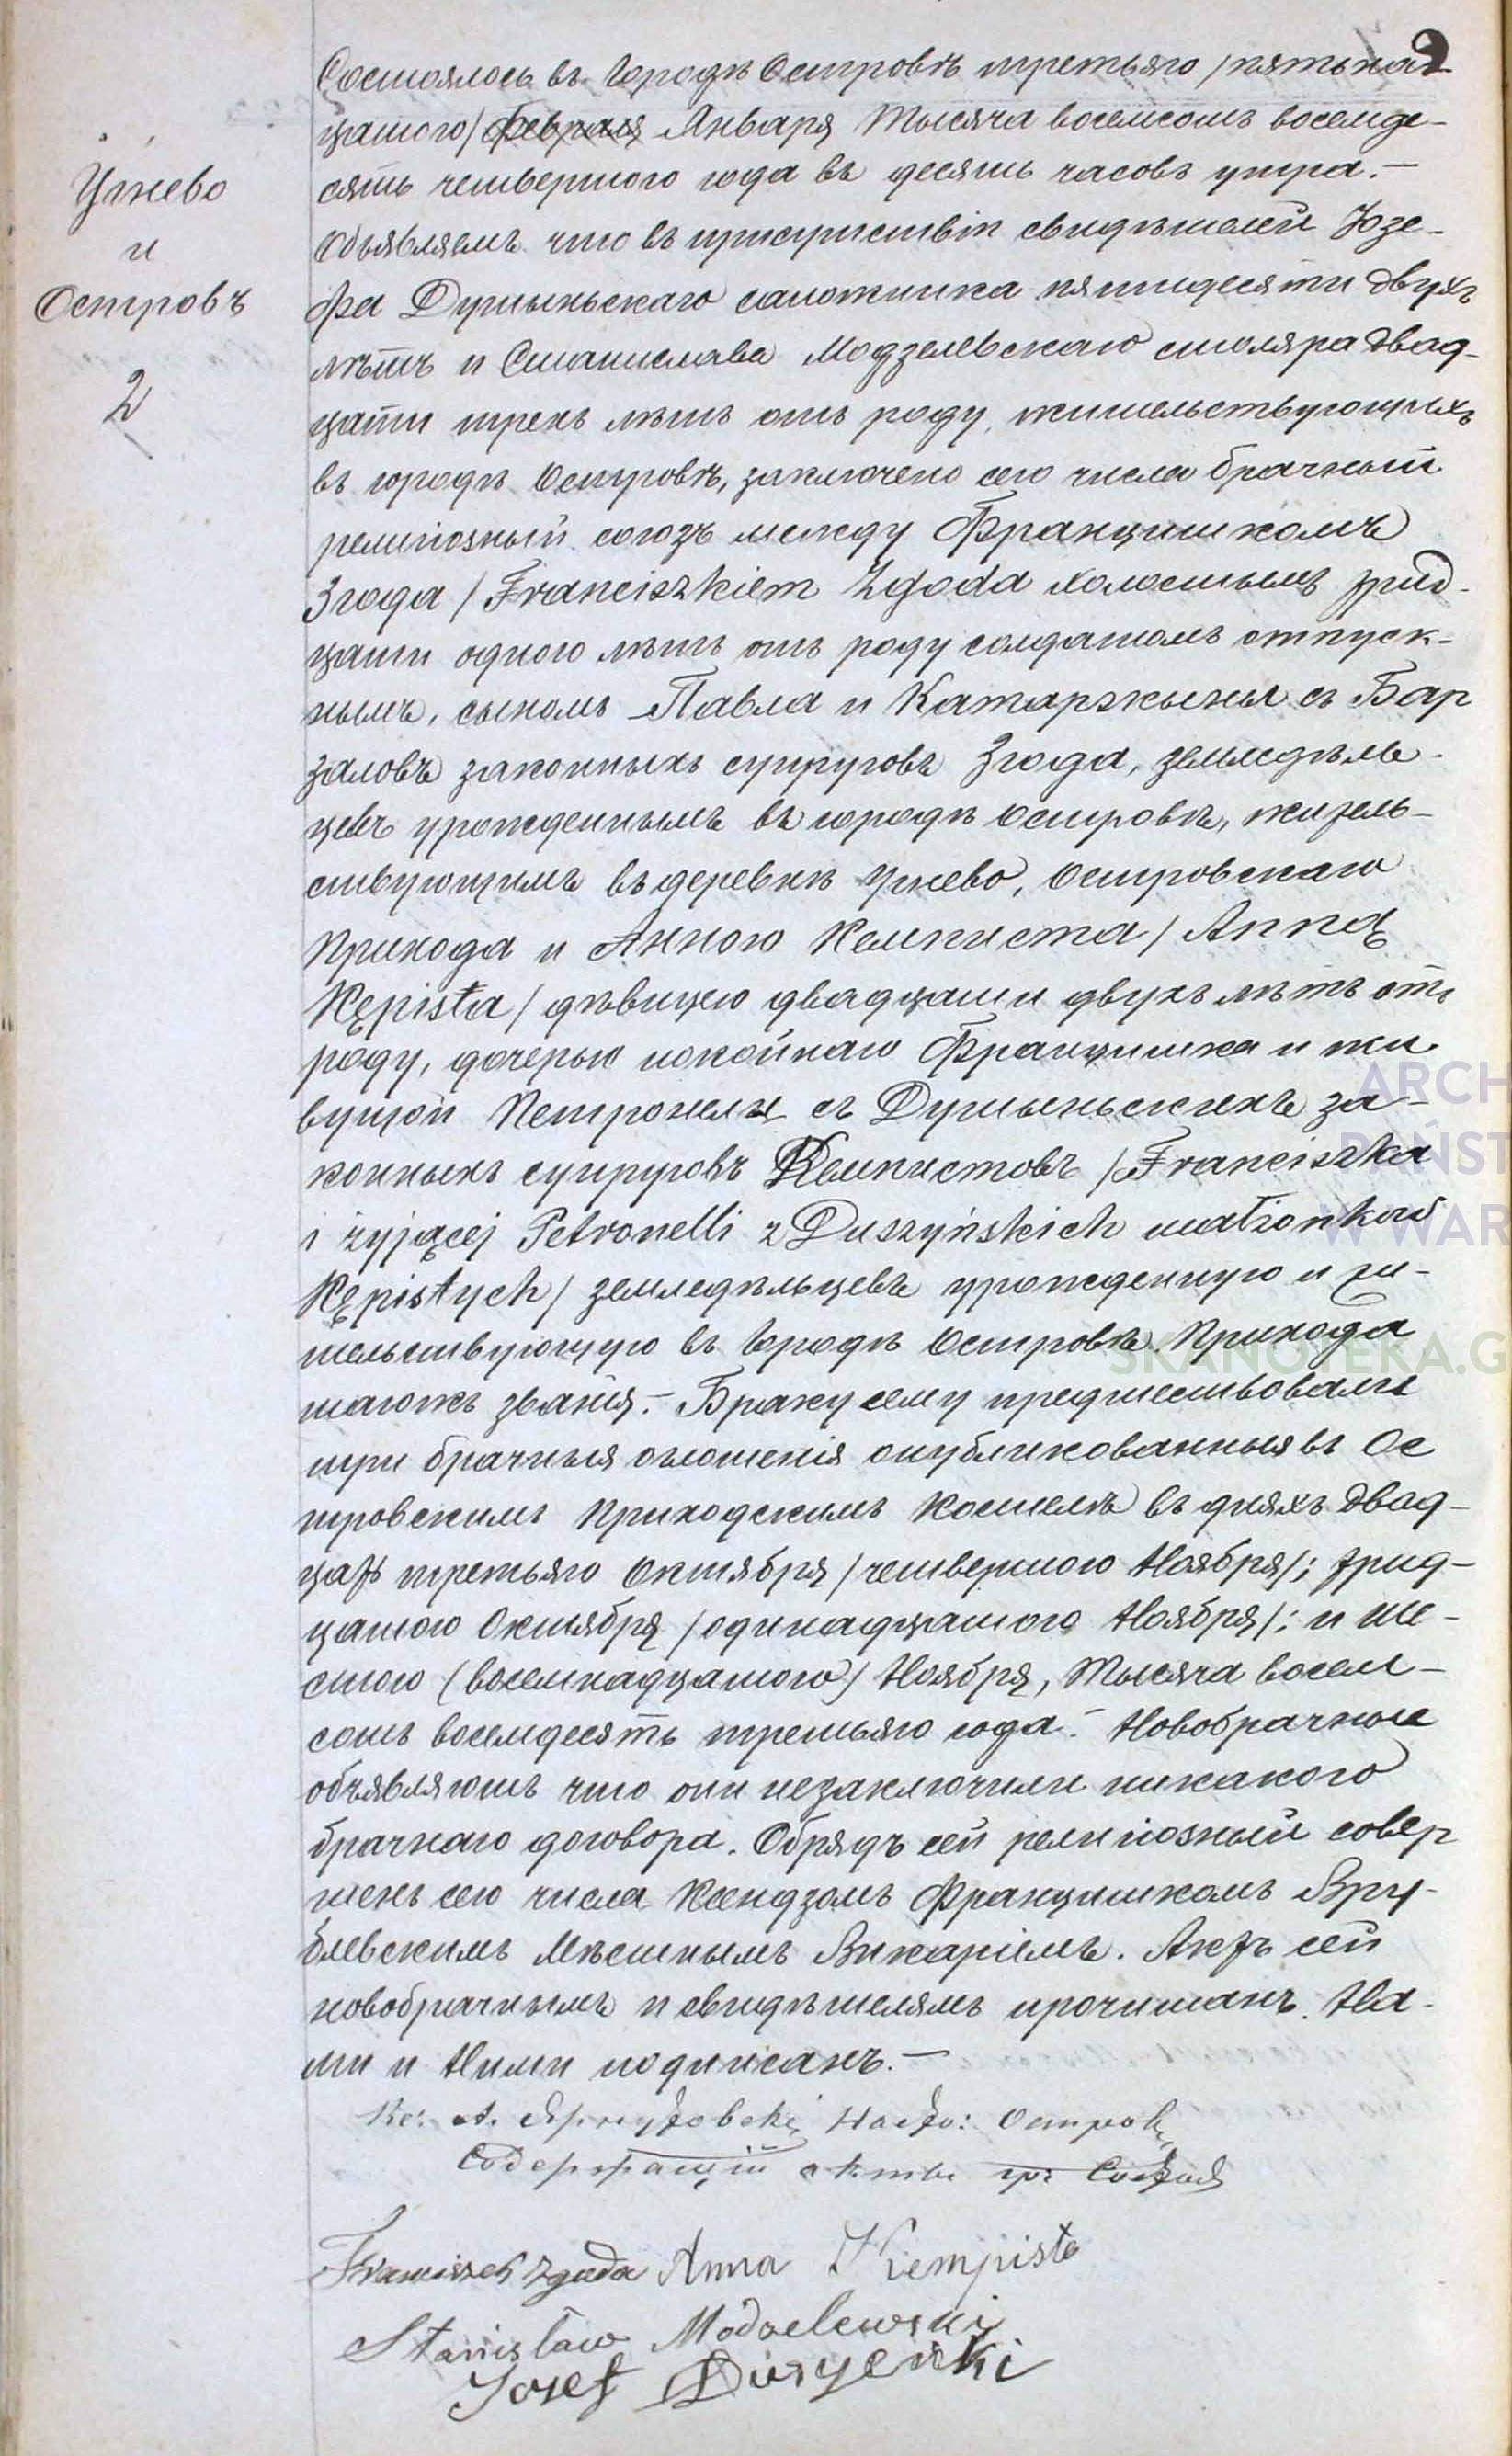 2
Состоялось въ Городѣ Островѣ третьяго /пятьнад-
цатого/ февраля Января Тысяча восемсотъ восемде-
сять четвертого года въ десять часовъ утра.-
Угнево
и
Островъ
2
Объявляемъ что въ присутствіи свидѣтелей Юзе-
фа Душыньскаго сапожника пятидесяти двухъ
лѣтъ и Станислава Модзелевскаго столяра двад-
цати трехъ лѣтъ отъ роду, жительствующихъ
въ городѣ Островѣ, заключено сего числа брачный
религіозный союзъ между Францишкомъ
Згода / Franciszkiem Zgoda холостымъ трид-
цати одного лѣтъ отъ роду солдатомъ отпуск-
нымъ, сыномъ Павла и Катаржыны съ Бар
заловъ законныхъ супруговъ Згода, земледѣль-
цевъ урожденнымъ въ городѣ Островѣ, житель-
ствующимъ въ деревнѣ Угнево, Островскаго
Прихода и Анною Кемписта / Anną
Kępista / дѣвицею двадцати двухъ лѣтъ отъ
роду, дочерью покойнаго Францишка и жи-
вущой Петронели съ Душыньскихъ за-
конныхъ супруговъ Кемпистовъ /Franciszka
i żyjącej Petronelli z Duszyńskich małżonków
Kępistych/ земледѣльцевъ урожденную и жи-
тельствующую въ Городѣ Островѣ. Прихода
тагожъ званія.- Браку сему предшествовали
три брачныя оглошенія опубликованныя въ Ос
тровскимъ Приходскимъ Костелѣ въ дняхъ двад-
цать третьяго Октября /четвертого Ноября/; трид-
цатого Октября /одинадцатого Ноября/; и ше-
стого (восемнадцатого) Ноября, Тысяча восем-
сотъ восемдесять третьяго года.- Новобрачные
объявляютъ что они незаключили никакого
брачнаго договора. Обрядъ сей религіозный совер
шенъ сего числа Ксендзомъ Францишкомъ Вру-
блевскимъ Мѣстнымъ Викаріемъ. Актъ сей
новобрачнымъ и свидѣтелямъ прочитанъ. На-
ми и Ними подписанъ.-
Кс: А. Насто: Остров
Содержащій акты гр: Состоя
Franciszek Zgoda Anna Kiempista
Stanisław Modzelewski
Jozef Duszyenski
ARCH
PAŃST
W WAR
SKANOTEKA.G